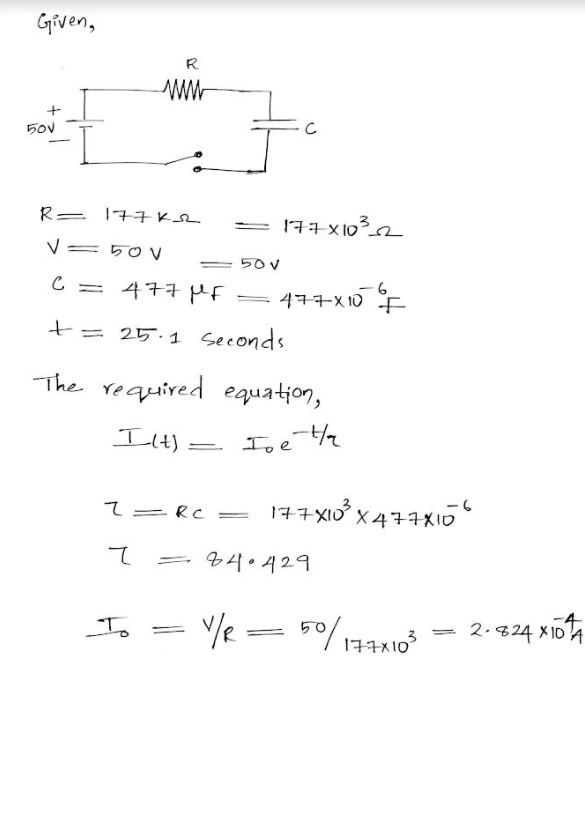 Given,
R
+
50V
—
C
R = 177 KΩ = 177 × 10³ Ω
V = 50 V = 50 V
C = 477 μF = 477 × 10⁻⁶ F
t = 25.1 seconds
The required equation,
I(t) = I₀ e^(-t/τ)
τ = RC = 177 × 10³ × 477 × 10⁻⁶
τ = 84.429
I₀ = V/R = 50/177×10³ = 2.824 × 10⁻⁴ A